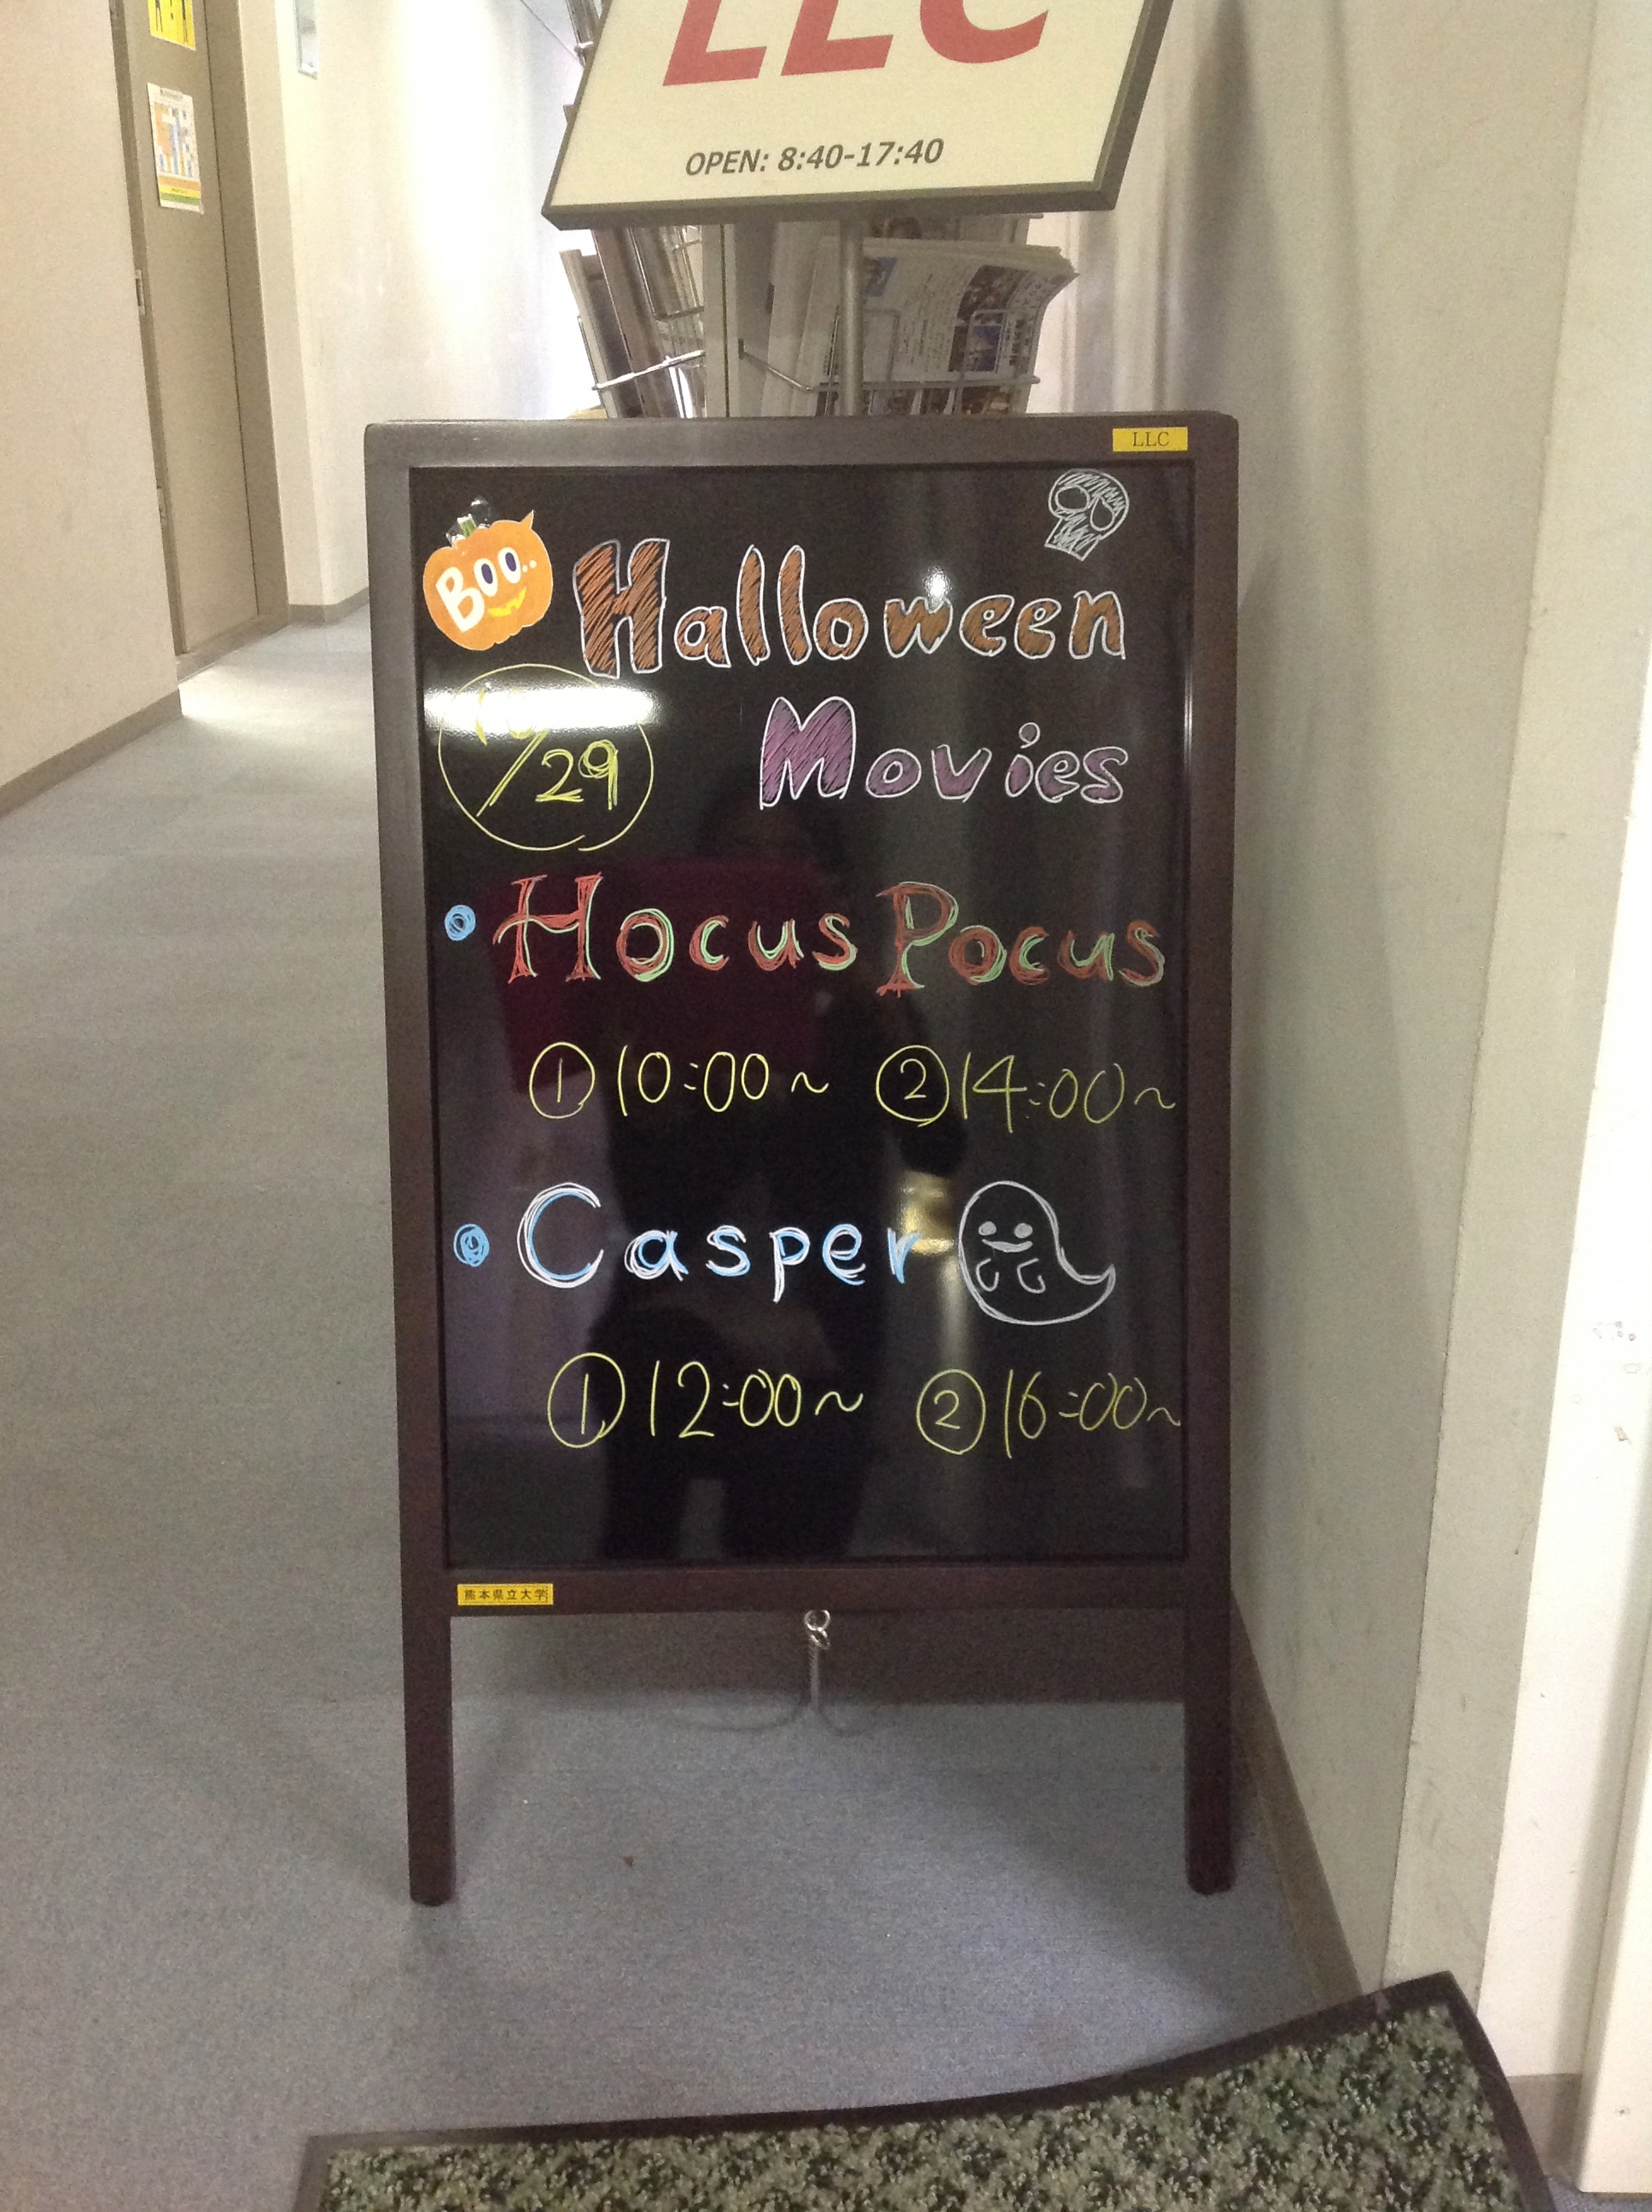 LLC
OPEN: 8:40-17:40
LLC
BOO..
Halloween
Movies
10/29
• Hocus Pocus
① 10:00~ ② 14:00~
• Casper
① 12:00~ ② 16:00~
熊本県立大学